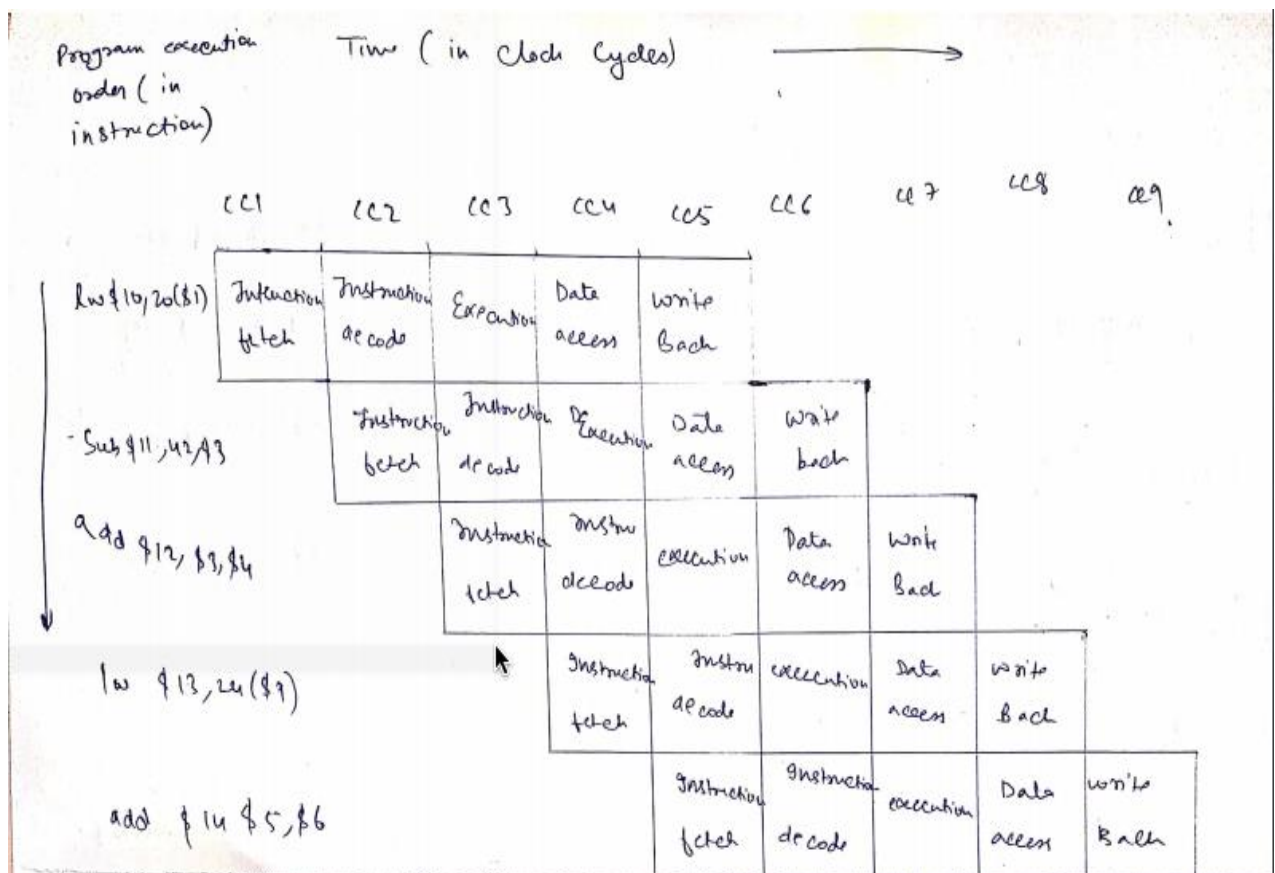 Program execution
order (in
instruction)
Time (in Clock Cycles)
CC1 CC2 CC3 CC4 CC5 CC6 CC7 CC8 CC9
lw $10, 20($1)
Intruction fetch
Instruction decode
Execution
Data access
Write Back
Sub $11, $2, $3
Instruction fetch
Instruction decode
Execution
Data access
Write back
add $12, $3, $4
Instruction fetch
Instru decode
execution
Data access
Write Back
lw $13, 24($1)
Instruction fetch
Instru decode
execution
Data access
write Back
add $14 $5, $6
Instruction fetch
Instruction decode
execution
Data access
write Back